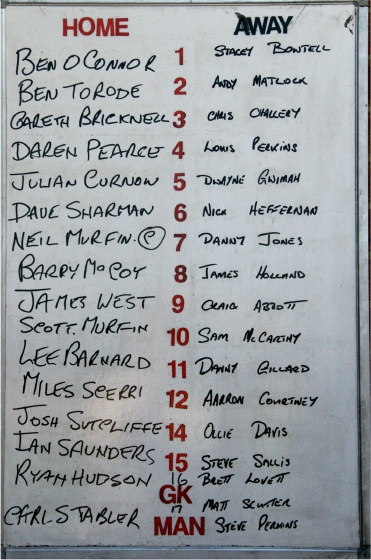 HOME AWAY
BEN O'CONNOR 1 STACEY BOWTELL
BEN TORODE 2 ANDY MATLOCK
GARETH BRICKNELL 3 CHRIS OHALLERY
DAREN PEARCE 4 LOUIS PERKINS
JULIAN CURNOW 5 DWAYNE GWIMAH
DAVE SHARMAN 6 NICK HEFFERNAN
NEIL MURFIN. C 7 DANNY JONES
BARRY McCOY 8 JAMES HOLLAND
JAMES WEST 9 CRAIG ABBOTT
SCOTT. MURFIN 10 SAM McCARTHY
LEE BARNARD 11 DANNY GILLARD
MILES SCERRI 12 AARRON COURTNEY
JOSH SUTCLIFFE 14 OLLIE DAVIS
IAN SAUNDERS 15 STEVE SALLIS
RYAN HUDSON 16 BRETT LOVETT
GK
17 MATT
CARL STABLER MAN STEVE PERKINS